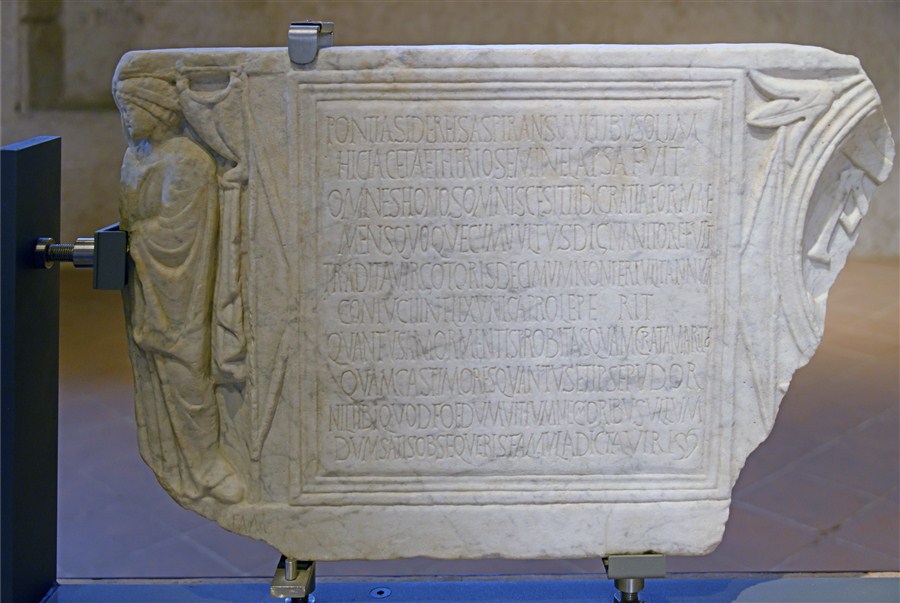 PONTIA SIDEREIS ASPIRANS VVLTIBVS OLIM
HIC IACET AETHERIO SEMINE LAPSA FVIT
OMNES HONOS OMNIS CESIT TIBI GRATIA FORMAE
MENS QVOQVE CVM VVLTVS DIGNA NITORE FVIT
TRADITA VIRGO TORIS DECIMVM NON PERTVLIT ANNVM
CONIVGII INFELIX VNICA PROLE PERIT
QVANTVS AMOR MENTIS PROBITAS QVAM GRATA MARITO
QVAM CASTI MORES QVANTVS ET IPSE PVDOR
QVOD FOEDVM VLLVM
DVM SATIS OBSEQVERIS FAMVLA DICTA VIRI